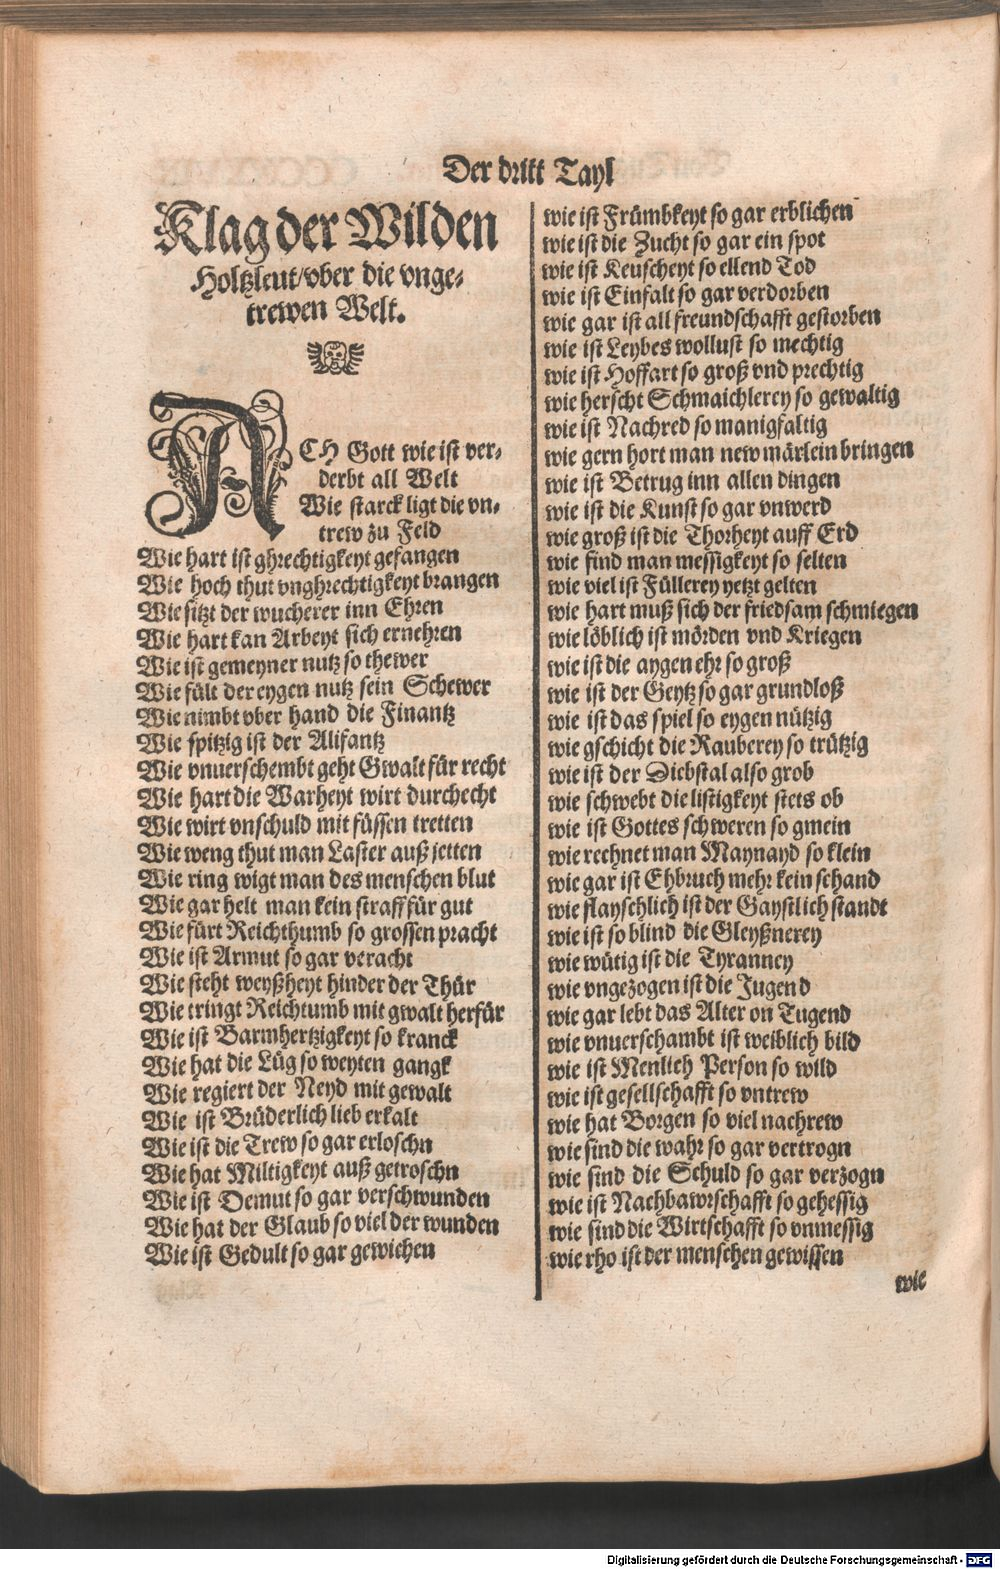 Der dritt Tayl
Klag der Wilden
Holtzleut/vber die vnge-
trewen Welt.
ACH Gott wie ist ver-
derbt all Welt
Wie starck ligt die vn-
trew zu Feld
Wie hart ist ghrechtigkeyt gefangen
Wie hoch thut vnghrechtigkeyt brangen
Wie sitzt der wucherer inn Ehren
Wie hart kan Arbeyt sich ernehren
Wie ist gemeyner nutz so thewer
Wie fült der eygen nutz sein Schewer
Wie nimbt vber hand die Finantz
Wie spitzig ist der Alifantz
Wie vnuerschembt geht Gwalt für recht
Wie hart die Warheyt wirt durchecht
Wie wirt vnschuld mit füssen tretten
Wie weng thut man Laster auß jetten
Wie ring wigt man des menschen blut
Wie gar helt man kein straff für gut
Wie fürt Reichthumb so grossen pracht
Wie ist Armut so gar veracht
Wie steht weyßheyt hinder der Thür
Wie tringt Reichtumb mit gwalt herfür
Wie ist Barmhertzigkeyt so kranck
Wie hat die Lüg so weyten gangk
Wie regiert der Neyd mit gewalt
Wie ist Brüderlich lieb erkalt
Wie ist die Trew so gar erloschn
Wie hat Miltigkeyt auß getroschn
Wie ist Demut so gar verschwunden
Wie hat der Glaub so viel der wunden
Wie ist Gedult so gar gewichen
wie ist Frümbkeyt so gar erblichen
wie ist die Zucht so gar ein spot
wie ist Keuscheyt so ellend Tod
wie ist Einfalt so gar verdorben
wie gar ist all freundschafft gestorben
wie ist Leybes wollust so mechtig
wie ist Hoffart so groß vnd prechtig
wie herscht Schmaichlerey so gewaltig
wie ist Nachred so manigfaltig
wie gern hort man new märlein bringen
wie ist Betrug inn allen dingen
wie ist die Kunst so gar vnwerd
wie groß ist die Thorheyt auff Erd
wie find man messigkeyt so selten
wie viel ist Füllerey yetzt gelten
wie hart muß sich der friedsam schmiegen
wie löblich ist mörden vnd Kriegen
wie ist die aygen ehr so groß
wie ist der Geytz so gar grundloß
wie ist das spiel so eygen nützig
wie gschicht die Rauberey so trützig
wie ist der Diebstal also grob
wie schwebt die listigkeyt stets ob
wie ist Gottes schweren so gmein
wie rechnet man Maynayd so klein
wie gar ist Ehbruch mehr kein schand
wie flayschlich ist der Gaystlich standt
wie ist so blind die Gleyßnerey
wie wütig ist die Tyranney
wie vngezogen ist die Jugend
wie gar lebt das Alter on Tugend
wie vnuerschambt ist weiblich bild
wie ist Menlich Person so wild
wie ist gesellschafft so vntrew
wie hat Borgen so viel nachrew
wie sind die wahr so gar vertrogn
wie sind die Schuld so gar verzogn
wie ist Nachbawrschafft so gehessig
wie sind die Wirtschafft so vnmessig
wie rho ist der menschen gewissen
wie
Digitalisierung gefördert durch die Deutsche Forschungsgemeinschaft - DFG